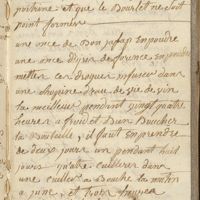 poitrine, et que le Bourlet ne soit
point former
une once de Bon jalap Enpoudre
une once d'iris de florence
mettre en infuser dans
une chopine d'eau de vie de vin
la meilleur pendant vingt quatre
heures a froid et Bien Boucher
la Bouteille, il faut En prendre
de deux jours un pendant huit
jours quatre cuilleres dans
une cuiller a Bouche la matin
a june, et trois